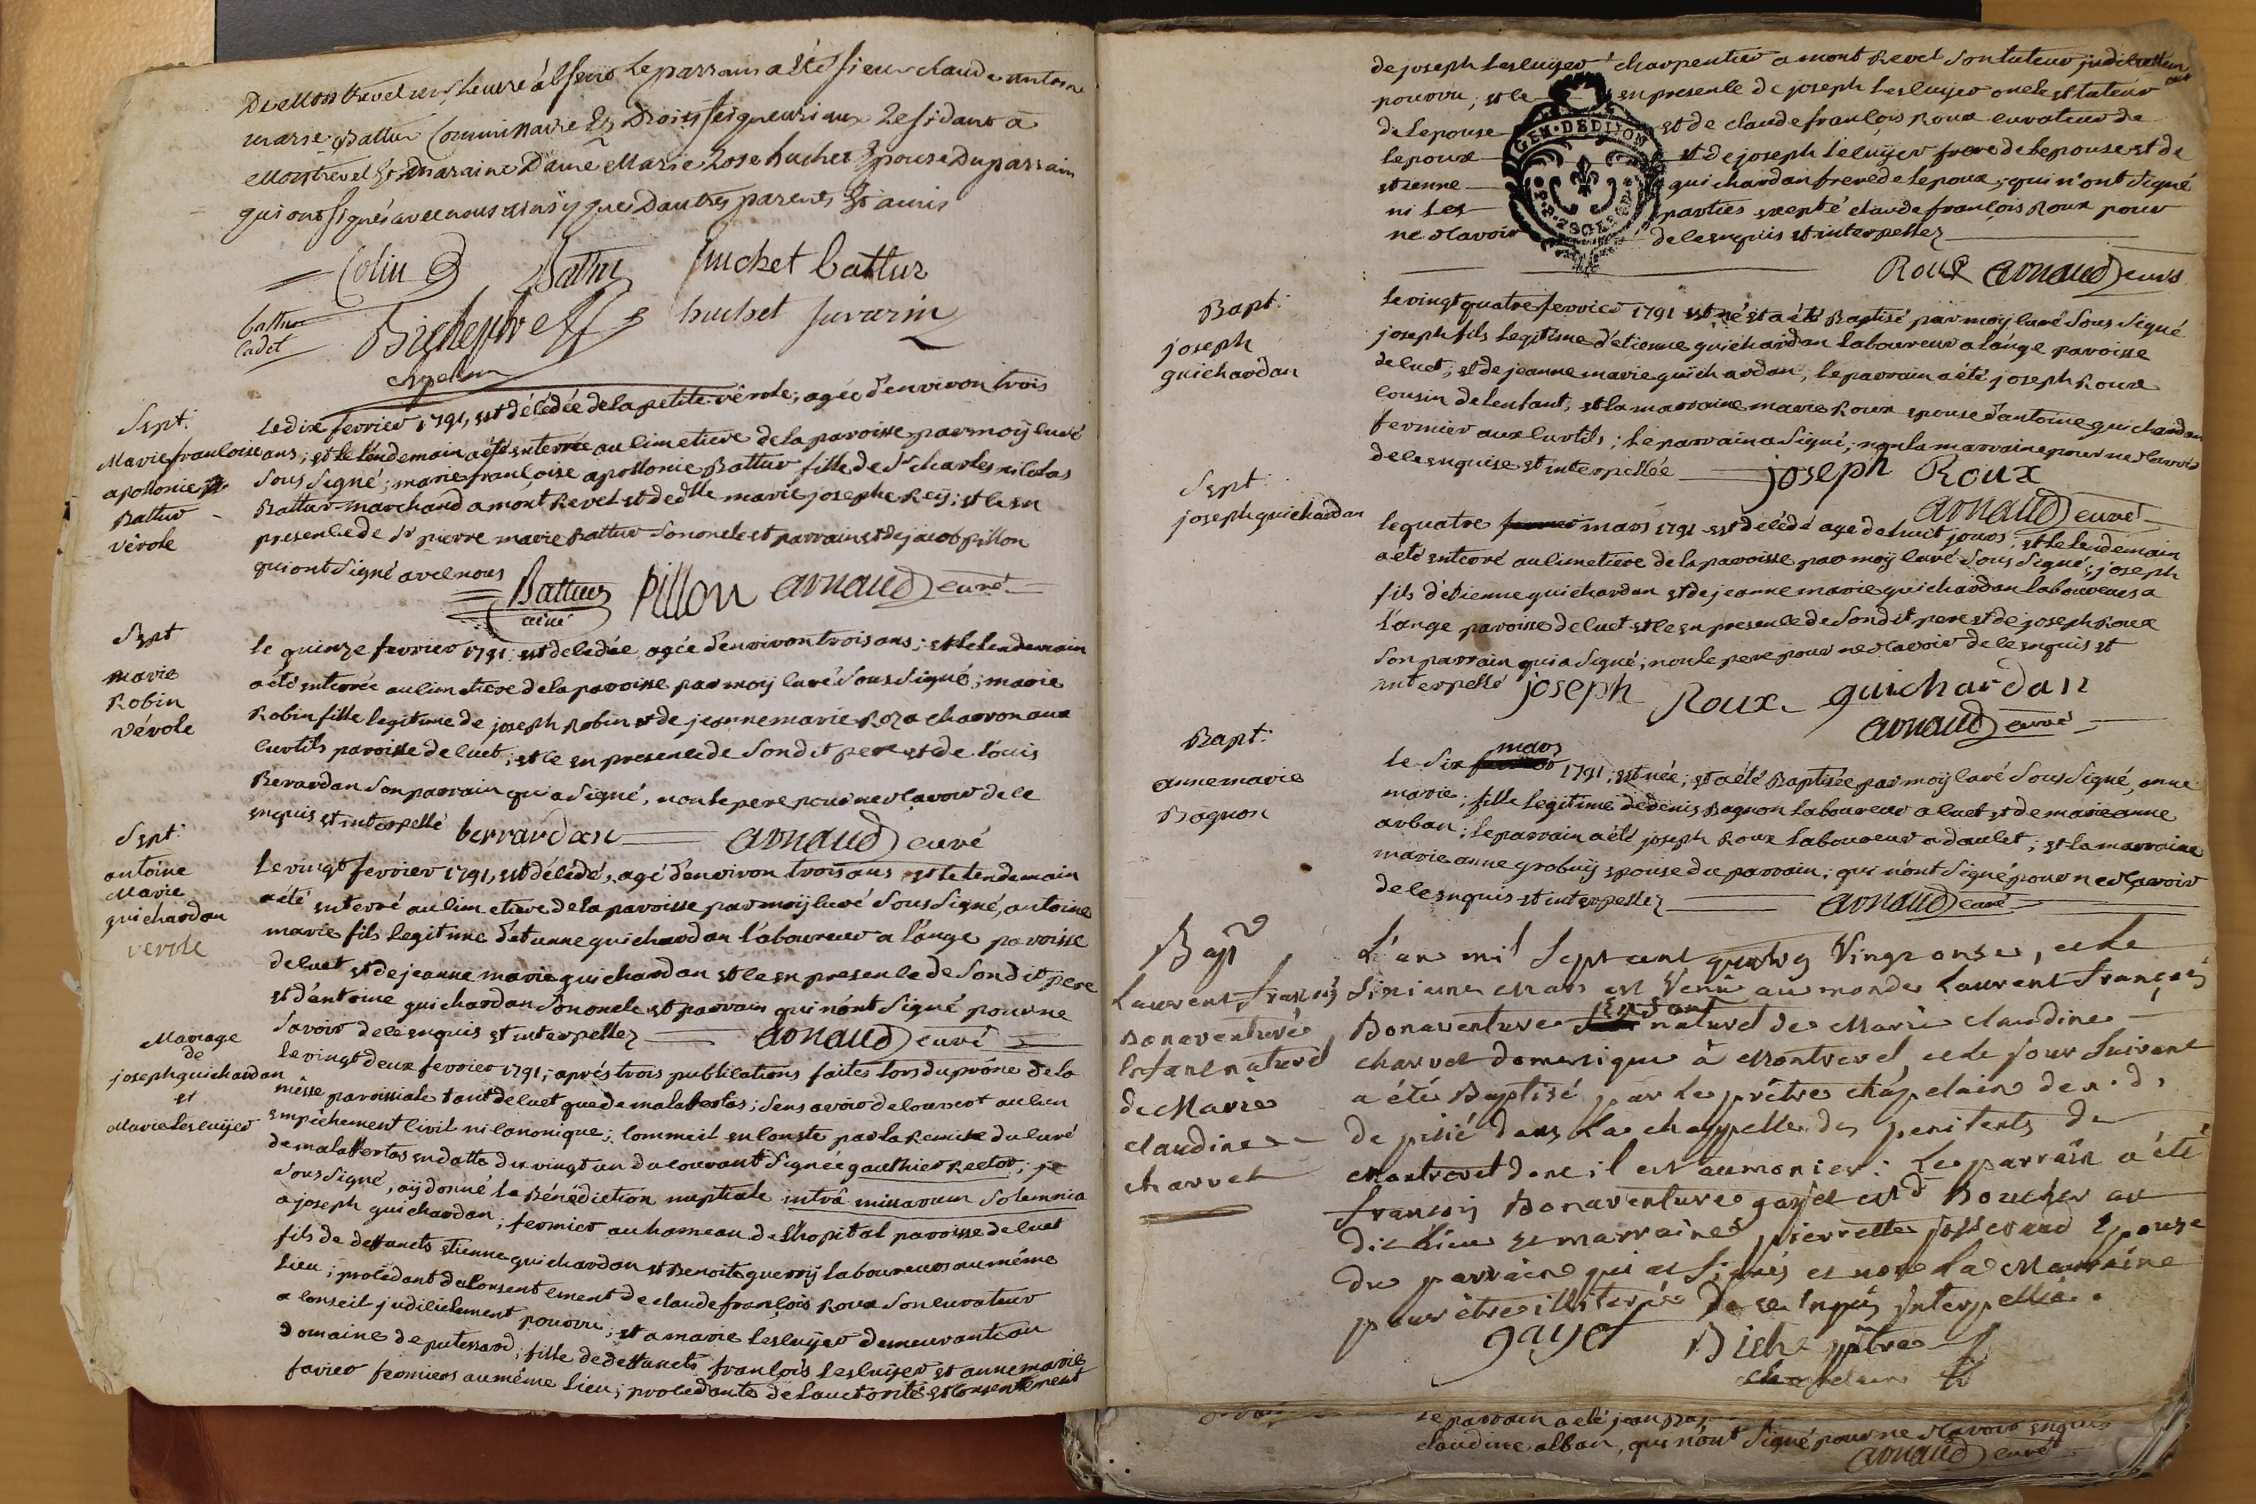 De Montrevel le parrain a Eté sieur claude antoine
marie Battur Commissaire Es Droits seigneuriaux Residant a
Montrevel Et maraine Dame Marie Rose huchet Epouse Du parrain
qui ont signés avec nous ainsy que Dautres parents Et amis
Colin Battur huchet battur
battur cadet
huchet juvarin
Sept.
Marie françoise
apollonie
Battur
vérole
Le dix fevrier 1791, est décédée de la petite vérole, agée d'environ trois
ans; et le lendemain a été enterrée au cimetiere de la paroisse par moÿ curé
sous signé; marie françoise apollonie Battur fille de Sr charles nicolas
Battur marchand a mont Revel et de dlle marie josephe Reÿ; et ce en
presence de Sr pierre marie Battur son oncle et parrain et de jacob pillon
qui ont signé avec nous
Battur ainé pillon arnaud curé
Sept
marie
Robin
vérole
le quinze fevrier 1791, est decedée agée d'environ trois ans; et le lendemain
a été enterrée au cimetiere de la paroisse par moÿ curé sous signé; marie
Robin fille legitime de joseph Robin et de jeanne marie Roza charron aux
curtils paroisse de cuet; et ce en presence de son dit pere et de loüis
Berardan son parrain qui a signé, non le pere pour ne sçavoir de ce
enquis et interpellé berrardan arnaud curé
Sept.
antoine
Marie
guichardan
verole
Le vingt fevrier 1791, est décédé, agé d'environ trois ans et le lendemain
a été enterré au cimetiere de la paroisse par moÿ curé sous signé, antoine
marie fils legitime d'etienne guichardan laboureur a l'ange paroisse
de cuet et de jeanne marie guichardan et ce en presence de son dit pere
et d'antoine guichardan son oncle et parrain qui n'ont signé pour ne
savoir de ce enquis et interpellez arnaud curé
Mariage
de
joseph guichardan
et
Marie Lescuÿer
le vingt deux fevrier 1791, aprés trois publications faites lors du prône de la
messe paroissiale tant de cuet que de malafretas; sans avoir decouvert aucun
empêchement civil ni canonique; comme il en conste par la Remise du curé
de malafretas en datte du vingt un du courant signée gauthier Rector; je
sous signé, aÿ donné la Bénédiction nuptiale intrà missarum solemnia
a joseph guichardan; fermier au hameau de l'hopital paroisse de cuet
fils de deffuncts etienne guichardan et Benoite guerrÿ laboureurs au même
lieu; procedant du consentement de claude françois Roux son curateur
a conseil judicielement pourvu; et a marie lescuÿer demeurante au
domaine de putessard; fille de deffuncts françois lescuÿer et anne marie
favier fermiers au même lieu; procedante de l'auctorité et consentement
de joseph lescuÿer charpentier a mont Revel son tuteur judiciellement
pourvu; et ce en presence de joseph lescuÿer oncle et tuteur
de lepouse et de claude françois Roux curateur de
lepoux et de joseph lecuÿer frere de lepouse et de
etienne guichardan frere de lepoux; qui n'ont signé
ni les parties excepté claude françois Roux pour
ne sçavoir de ce enquis et interpellez
GEN. DE DIJON
Roux arnaud curé
Bapt.
joseph
guichardan
le vingt quatre fevrier 1791 est né et a été Baptisé par moÿ curé sous signé
joseph fils legitime d'etienne guichardan laboureur a l'ange paroisse
de cuet; et de jeanne marie guichardan; le parrain a été joseph Roux
cousin de lenfant, et la marraine marie Roux epouse d'antoine guichardan
fermier aux curtils; le parrain a signé, non la marraine pour ne sçavoir
de ce enquise et interpellée joseph Roux
arnaud curé
Sept.
joseph guichardan
le quatre mars 1791 est décédé age de huict jours; et le lendemain
a été enterré au cimetiere de la paroisse par moÿ curé sous signé; joseph
fils d'etienne guichardan et de jeanne marie guichardan laboureurs a
l'ange paroisse de cuet et ce en presence de son dit pere et de joseph Roux
son parrain qui a signé; non le pere pour ne sçavoir de ce enquis et
interpellé joseph Roux guichardan
arnaud curé
Bapt.
anne marie
Bagnon
le six mars 1791, est née; et a été Baptisée par moÿ curé sous signé, anne
marie; fille legitime de denis Bagnon laboureur a cuet et de marie anne
arban; le parrain a été joseph Roux laboureur a daulet; et la marraine
marie anne grobuÿ epouse du parrain; qui n'ont signé pour ne sçavoir
de ce enquis et interpellez arnaud curé
Bap
Laurent françois
Bonaventure
Enfant naturel
de Marie
claudine
charvet
L'an mil sept cent quatre Vingt onze, et le
sixieme Mars est Venu au monde laurent françois
Bonaventure Enfant naturel de Marie claudine
charvet domestique à Montrevel, et le jour suivant
a été Baptisé par le prêtre chapelain de n. d.
de pitié dans la chappelle des penitents de
Montrevel dont il est aumonier: Le parrain a été
françois Bonaventure gayet Boucher au
dit Lieu et marraine pierrette josserand Epouse
du parrain qui a signés et non la Marraine
pour être illiterée De ce Enquis Interpellée.
gayet prêtre
chapelain
le parrain a eté jean
claudine alban, qui n'ont signé pour ne sçavoir enquis
arnaud curé